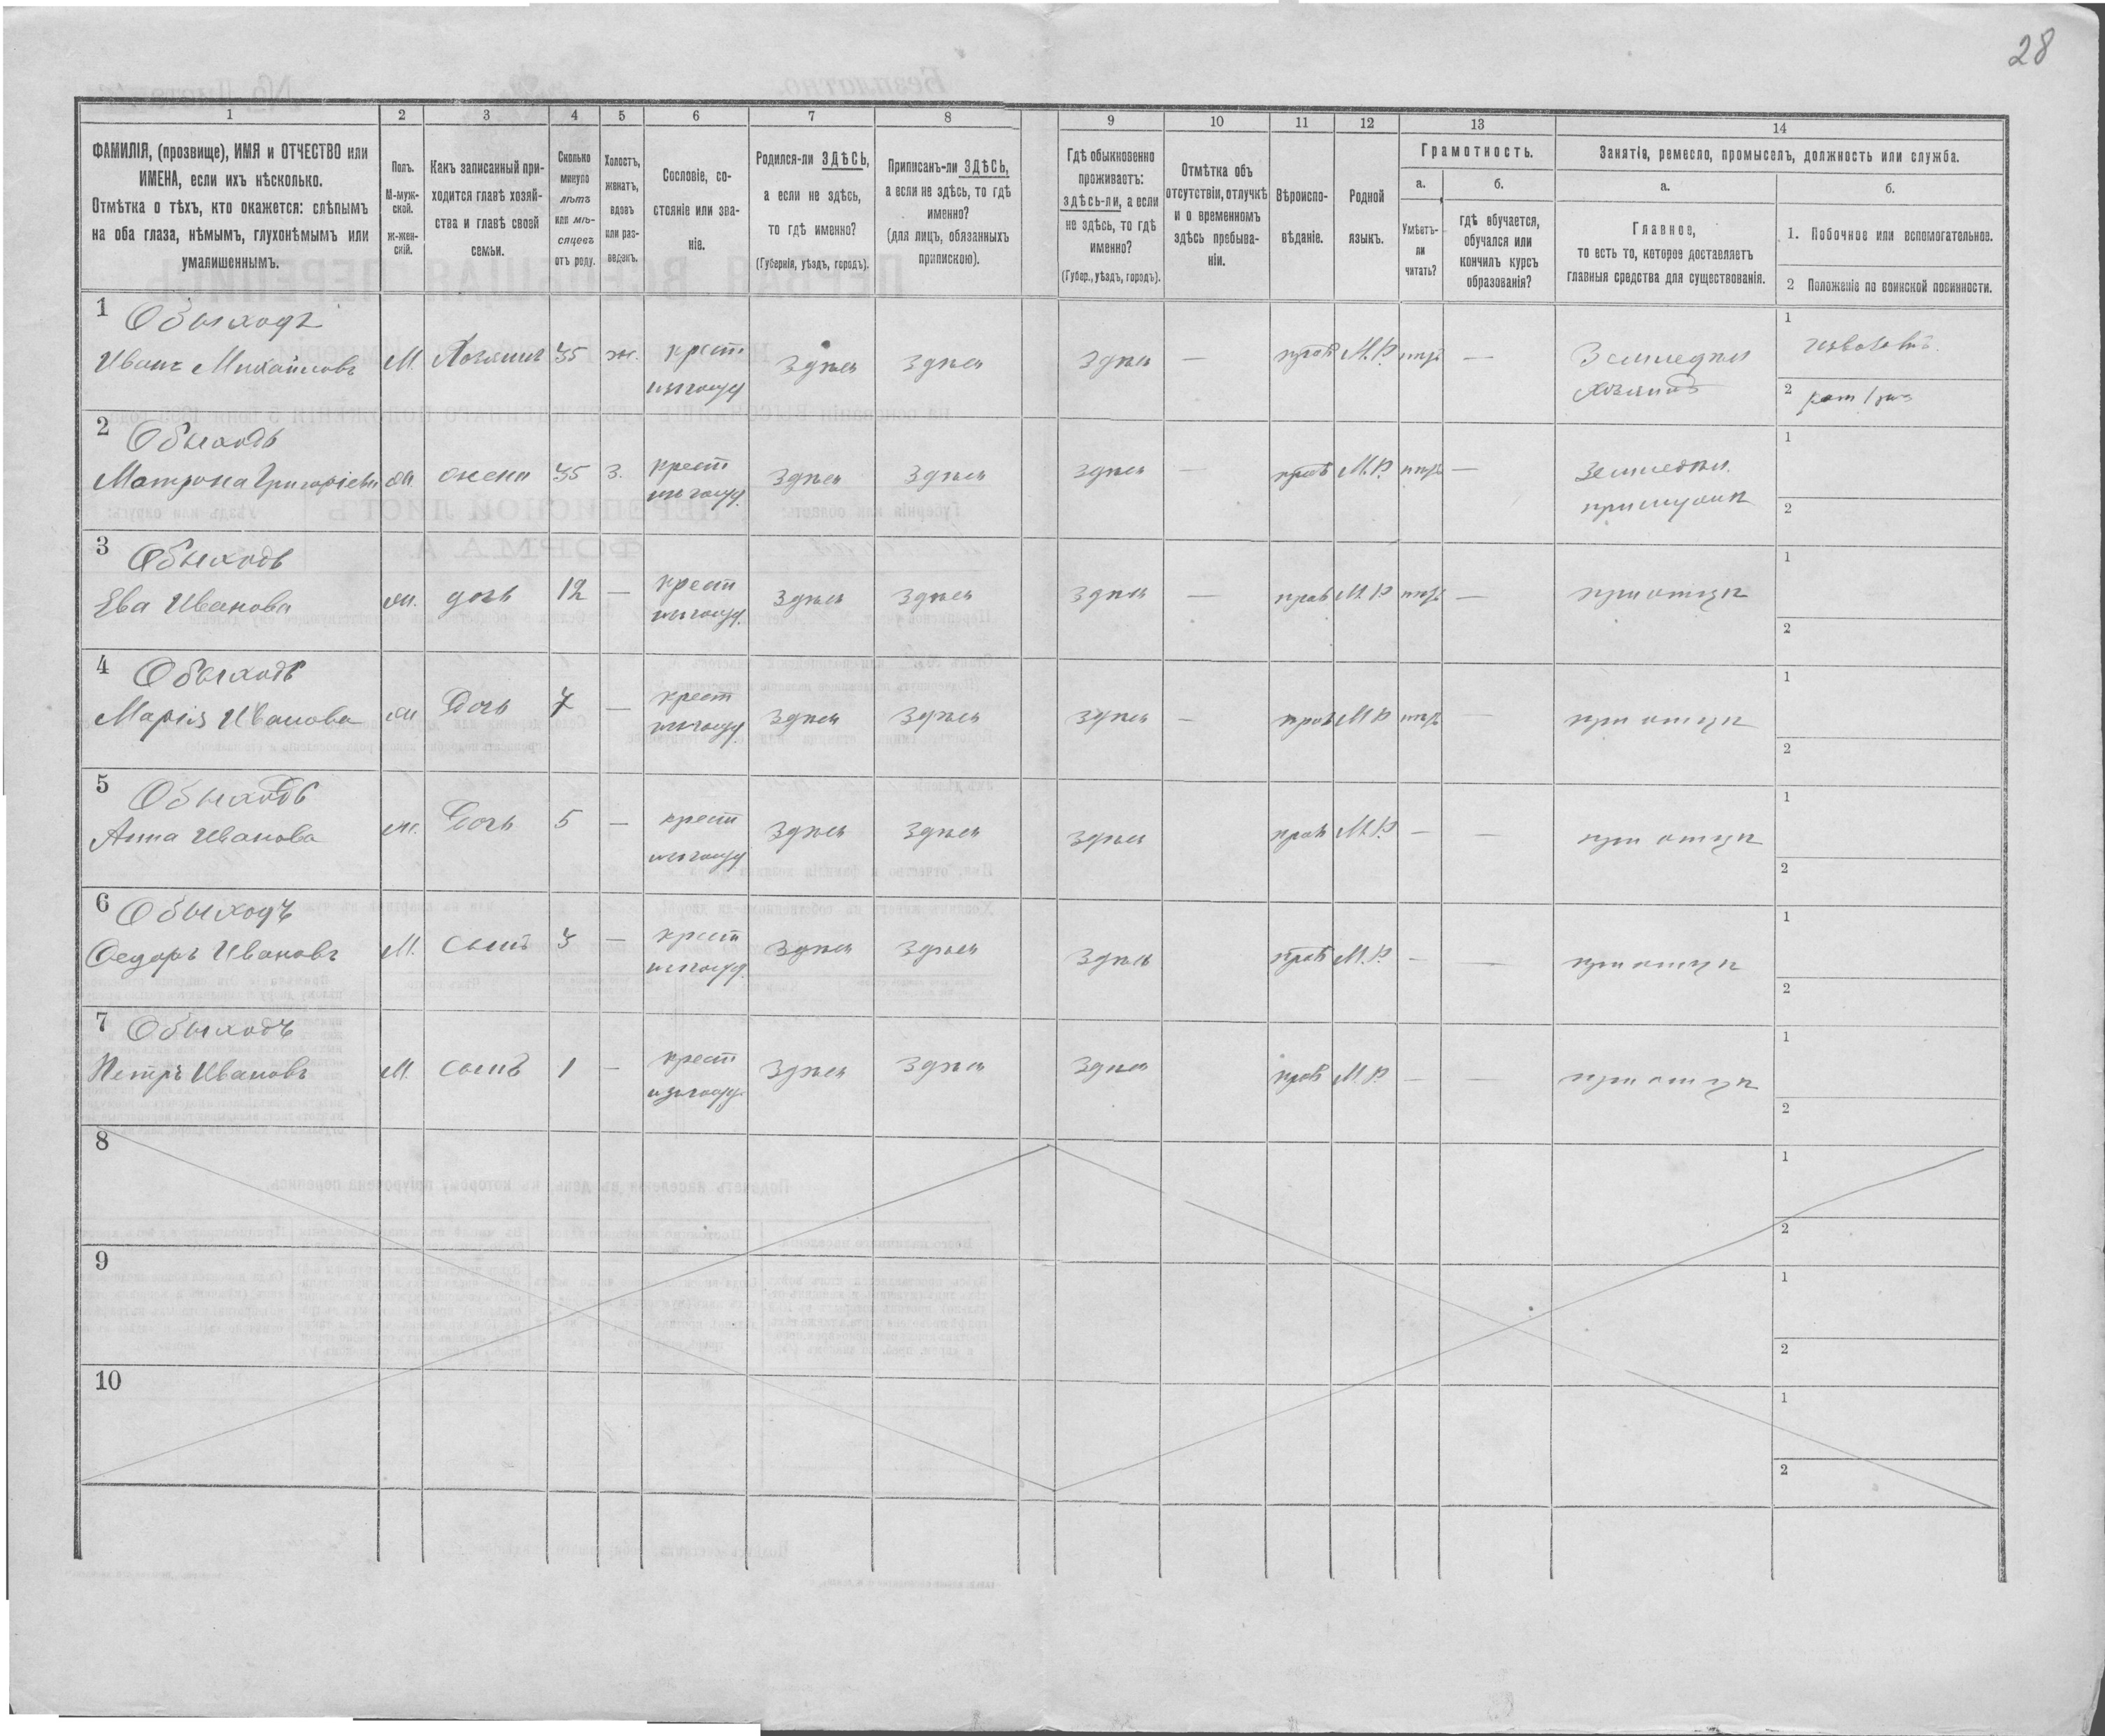 28
1 2 3 4 5 6 7 8 9 10 11 12 13 14
ФАМИЛІЯ, (прозвище), ИМЯ и ОТЧЕСТВО или
ИМЕНА, если ихъ нѣсколько.
Отмѣтка о тѣхъ, кто окажется: слѣпымъ
на оба глаза, нѣмымъ, глухонѣмымъ или
умалишеннымъ.
Полъ.
М-муж-
ской.
ж-жен-
скій.
Какъ записанный при-
ходится главѣ хозяй-
ства и главѣ своей
семьи.
Сколько
минуло
лѣтъ
или мѣ-
сяцевъ
отъ роду.
Холостъ,
женатъ,
вдовъ
или раз-
веденъ.
Сословіе, со-
стояніе или зва-
ніе.
Родился-ли ЗДѢСЬ,
а если не здѣсь,
то гдѣ именно?
(Губернія, уѣздъ, городъ).
Приписанъ-ли ЗДѢСЬ,
а если не здѣсь, то гдѣ
именно?
(для лицъ, обязанныхъ
припискою).
Гдѣ обыкновенно
проживаетъ:
здѣсь-ли, а если
не здѣсь, то гдѣ
именно?
(Губер., уѣздъ, городъ).
Отмѣтка объ
отсутствіи, отлучкѣ
и о временномъ
здѣсь пребыва-
ніи.
Вѣроиспо-
вѣданіе.
Родной
языкъ.
Грамотность.
а.
Умѣетъ-
ли
читать?
б.
гдѣ обучается,
обучался или
кончилъ курсъ
образованія?
Занятіе, ремесло, промыселъ, должность или служба.
а.
Главное,
то есть то, которое доставляетъ
главныя средства для существованія.
б.
1. Побочное или вспомогательное.
2 Положеніе по воинской повинности.
1 Обыходъ
Иванъ Михайловъ М. Хозяинъ 35 ж. крест здѣсь здѣсь здѣсь — прав М.Р. нѣтъ — Земледѣл
хозяинъ
1 извозъ
2
2 Обыходъ
Матрона Григоріева ж жена 35 з. крест здѣсь здѣсь здѣсь — прав М.Р. нѣтъ — земледѣл.
при мужѣ
1
2
3 Обыходъ
Ева Иванова ж. дочь 12 — крест здѣсь здѣсь здѣсь — прав М.Р нѣтъ — при отцѣ
1
2
4 Обыходъ
Марія Иванова ж Дочь 7 — крест здѣсь здѣсь здѣсь — прав М.Р нѣтъ — при отцѣ
1
2
5 Обыходъ
Анна Иванова ж. Дочь 5 — крест здѣсь здѣсь здѣсь прав М.Р. — — при отцѣ
1
2
6 Обыходъ
Федоръ Ивановъ М. сынъ 3 — крест здѣсь здѣсь здѣсь прав М.Р. — — при отцѣ
1
2
7 Обыходъ
Петръ Ивановъ М. сынъ 1 — крест здѣсь здѣсь здѣсь прав М.Р. — — при отцѣ
1
2
8
1
2
9
1
2
10
1
2